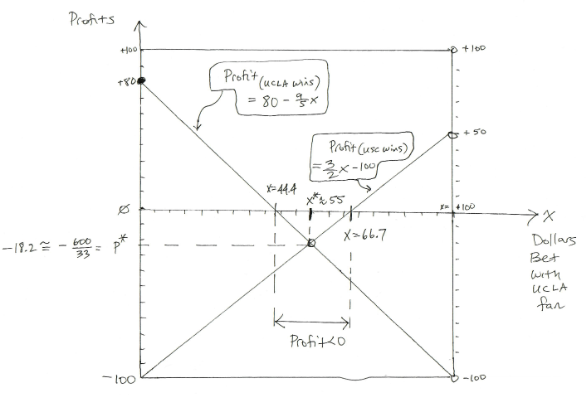 Profits
+100
+100
+80
Profit (UCLA wins)
= 80 - 9/5 x
Profit (USC wins)
= 3/2 x - 100
+50
x=44.4
x* ≈ 55
x= +100
Ø
X
X=66.7
-18.2 ≅ - 600/33 = P*
Dollars
Bet
with
UCLA
fan
Profit<0
-100
-100